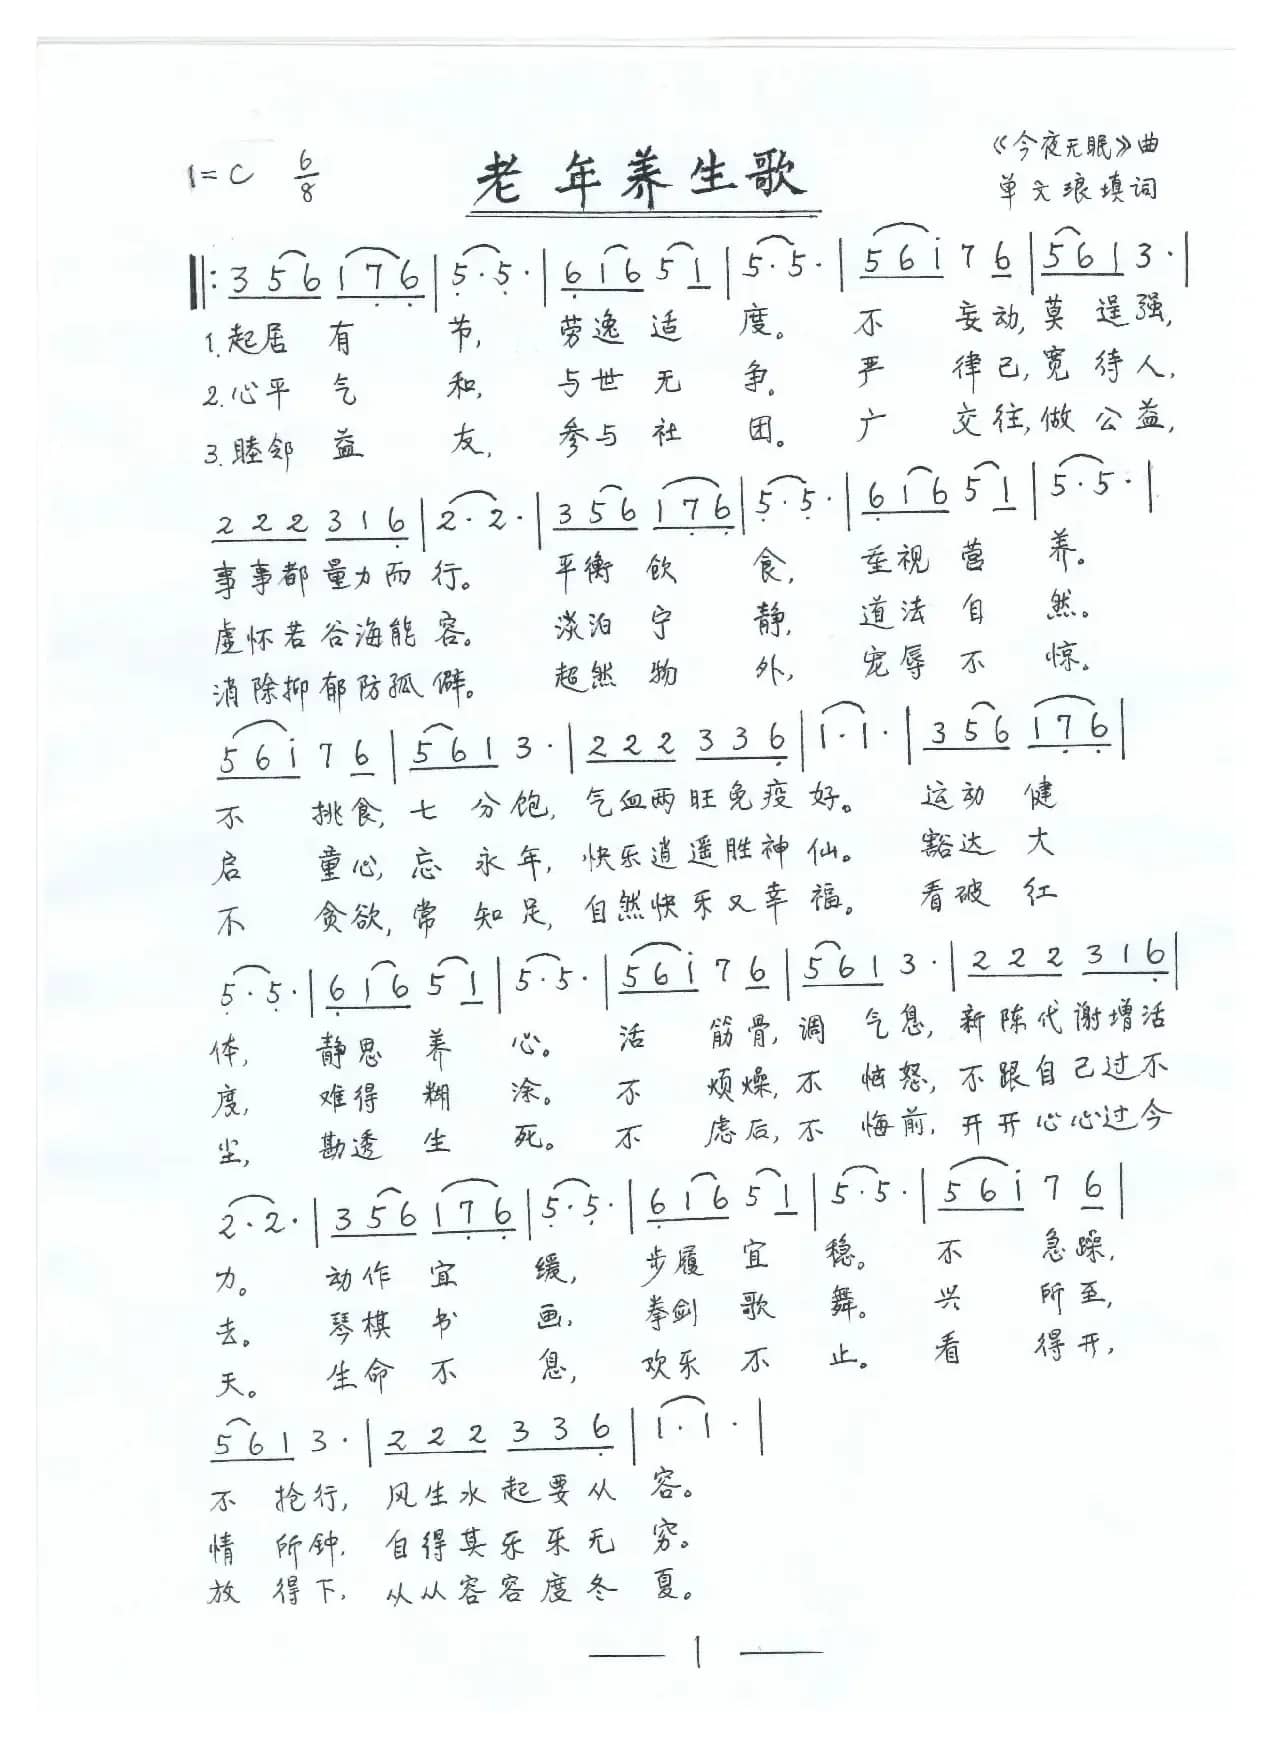 1=C 6/8
老年养生歌
《今夜无眠》曲
单文琅填词
‖: 3 5 6 1 7 6 | 5 · 5 · | 6 1 6 5 1 | 5 · 5 · | 5 6 i 7 6 | 5 6 1 3 · |
1. 起居 有 节, 劳逸 适 度。 不 妄动, 莫 逞强,
2. 心平 气 和, 与世 无 争。 严 律己, 宽 待人,
3. 睦邻 益 友, 参与 社 团。 广 交往, 做 公益,
2 2 2 3 1 6 | 2 · 2 · | 3 5 6 1 7 6 | 5 · 5 · | 6 1 6 5 1 | 5 · 5 · |
事事都量力而行。 平衡 饮 食, 重视 营 养。
虚怀若谷海能容。 淡泊 宁 静, 道法 自 然。
消除抑郁防孤僻。 超然 物 外, 宠辱 不 惊。
5 6 i 7 6 | 5 6 1 3 · | 2 2 2 3 3 6 | 1 · 1 · | 3 5 6 1 7 6 |
不 挑食, 七 分饱, 气血两旺免疫好。 运动 健
启 童心, 忘 永年, 快乐逍遥胜神仙。 豁达 大
不 贪欲, 常 知足, 自然快乐又幸福。 看破 红
5 · 5 · | 6 1 6 5 1 | 5 · 5 · | 5 6 i 7 6 | 5 6 1 3 · | 2 2 2 3 1 6 |
体, 静思 养 心。 活 筋骨, 调 气息, 新陈代谢增活
度, 难得 糊 涂。 不 烦燥, 不 恼怒, 不跟自己过不
尘, 勘透 生 死。 不 虑后, 不 悔前, 开开心心过今
2 · 2 · | 3 5 6 1 7 6 | 5 · 5 · | 6 1 6 5 1 | 5 · 5 · | 5 6 i 7 6 |
力。 动作 宜 缓, 步履 宜 稳。 不 急躁,
去。 琴棋 书 画, 拳剑 歌 舞。 兴 所至,
天。 生命 不 息, 欢乐 不 止。 看 得开,
5 6 1 3 · | 2 2 2 3 3 6 | 1 · 1 · |
不 抢行, 风生水起要从容。
情 所钟, 自得其乐乐无穷。
放 得下, 从从容容度冬夏。
— 1 —